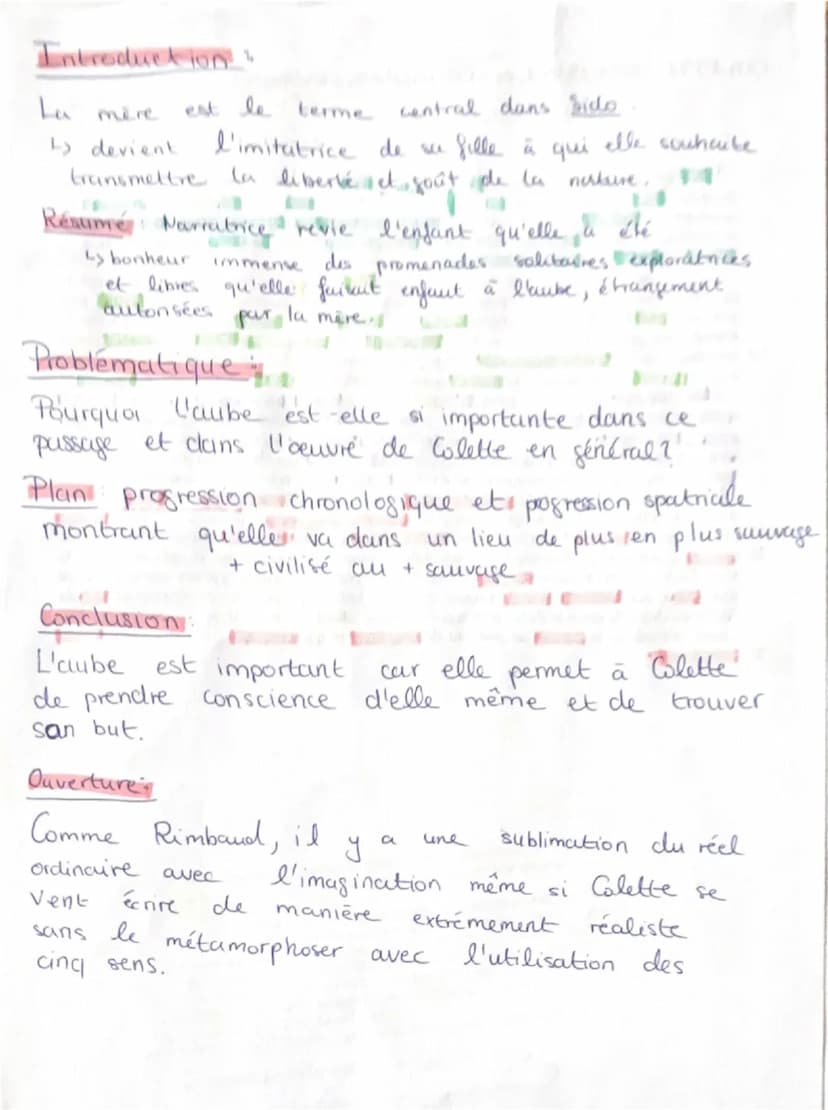 Introduction :
La mère est le terme central dans Sido.
↳ devient l'imitatrice de sa fille à qui elle souhaite
transmettre la liberté et goût de la nature.
Résumé : Narratrice revie l'enfant qu'elle a été
↳ bonheur immense des promenades solitaires exploratrices
et libres qu'elle faisait enfant à l'aube, étrangement
autorisées par la mère.
Problématique :
Pourquoi l'aube est-elle si importante dans ce
passage et dans l'oeuvre de Colette en général ?
Plan : progression chronologique et pogression spatriale
montrant qu'elle va dans un lieu de plus en plus sauvage
+ civilisé au + sauvage
Conclusion :
L'aube est important car elle permet à Colette
de prendre conscience d'elle même et de trouver
san but.
Ouverture :
Comme Rimbaud, il y a une sublimation du réel
ordinaire avec l'imagination même si Colette se
vent écrire de manière extrémement réaliste
sans le métamorphoser avec l'utilisation des
cinq sens.